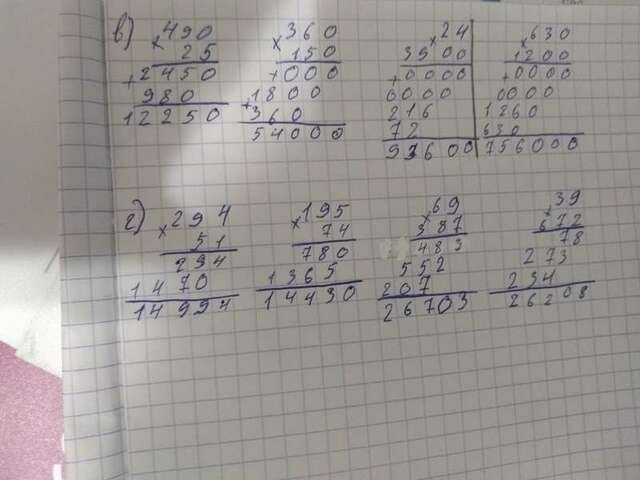 в) ×490 ×360 ×24 ×630
25 150 3900 1200
+2450 +000 +0000 +0000
980 +1800 0000 0000
12250 360 216 1260
54000 72 630
93600 756000
г) ×294 ×195 ×69 ×39
51 74 387 672
294 780 483 78
1470 1365 552 273
14994 14430 207 234
26703 26208